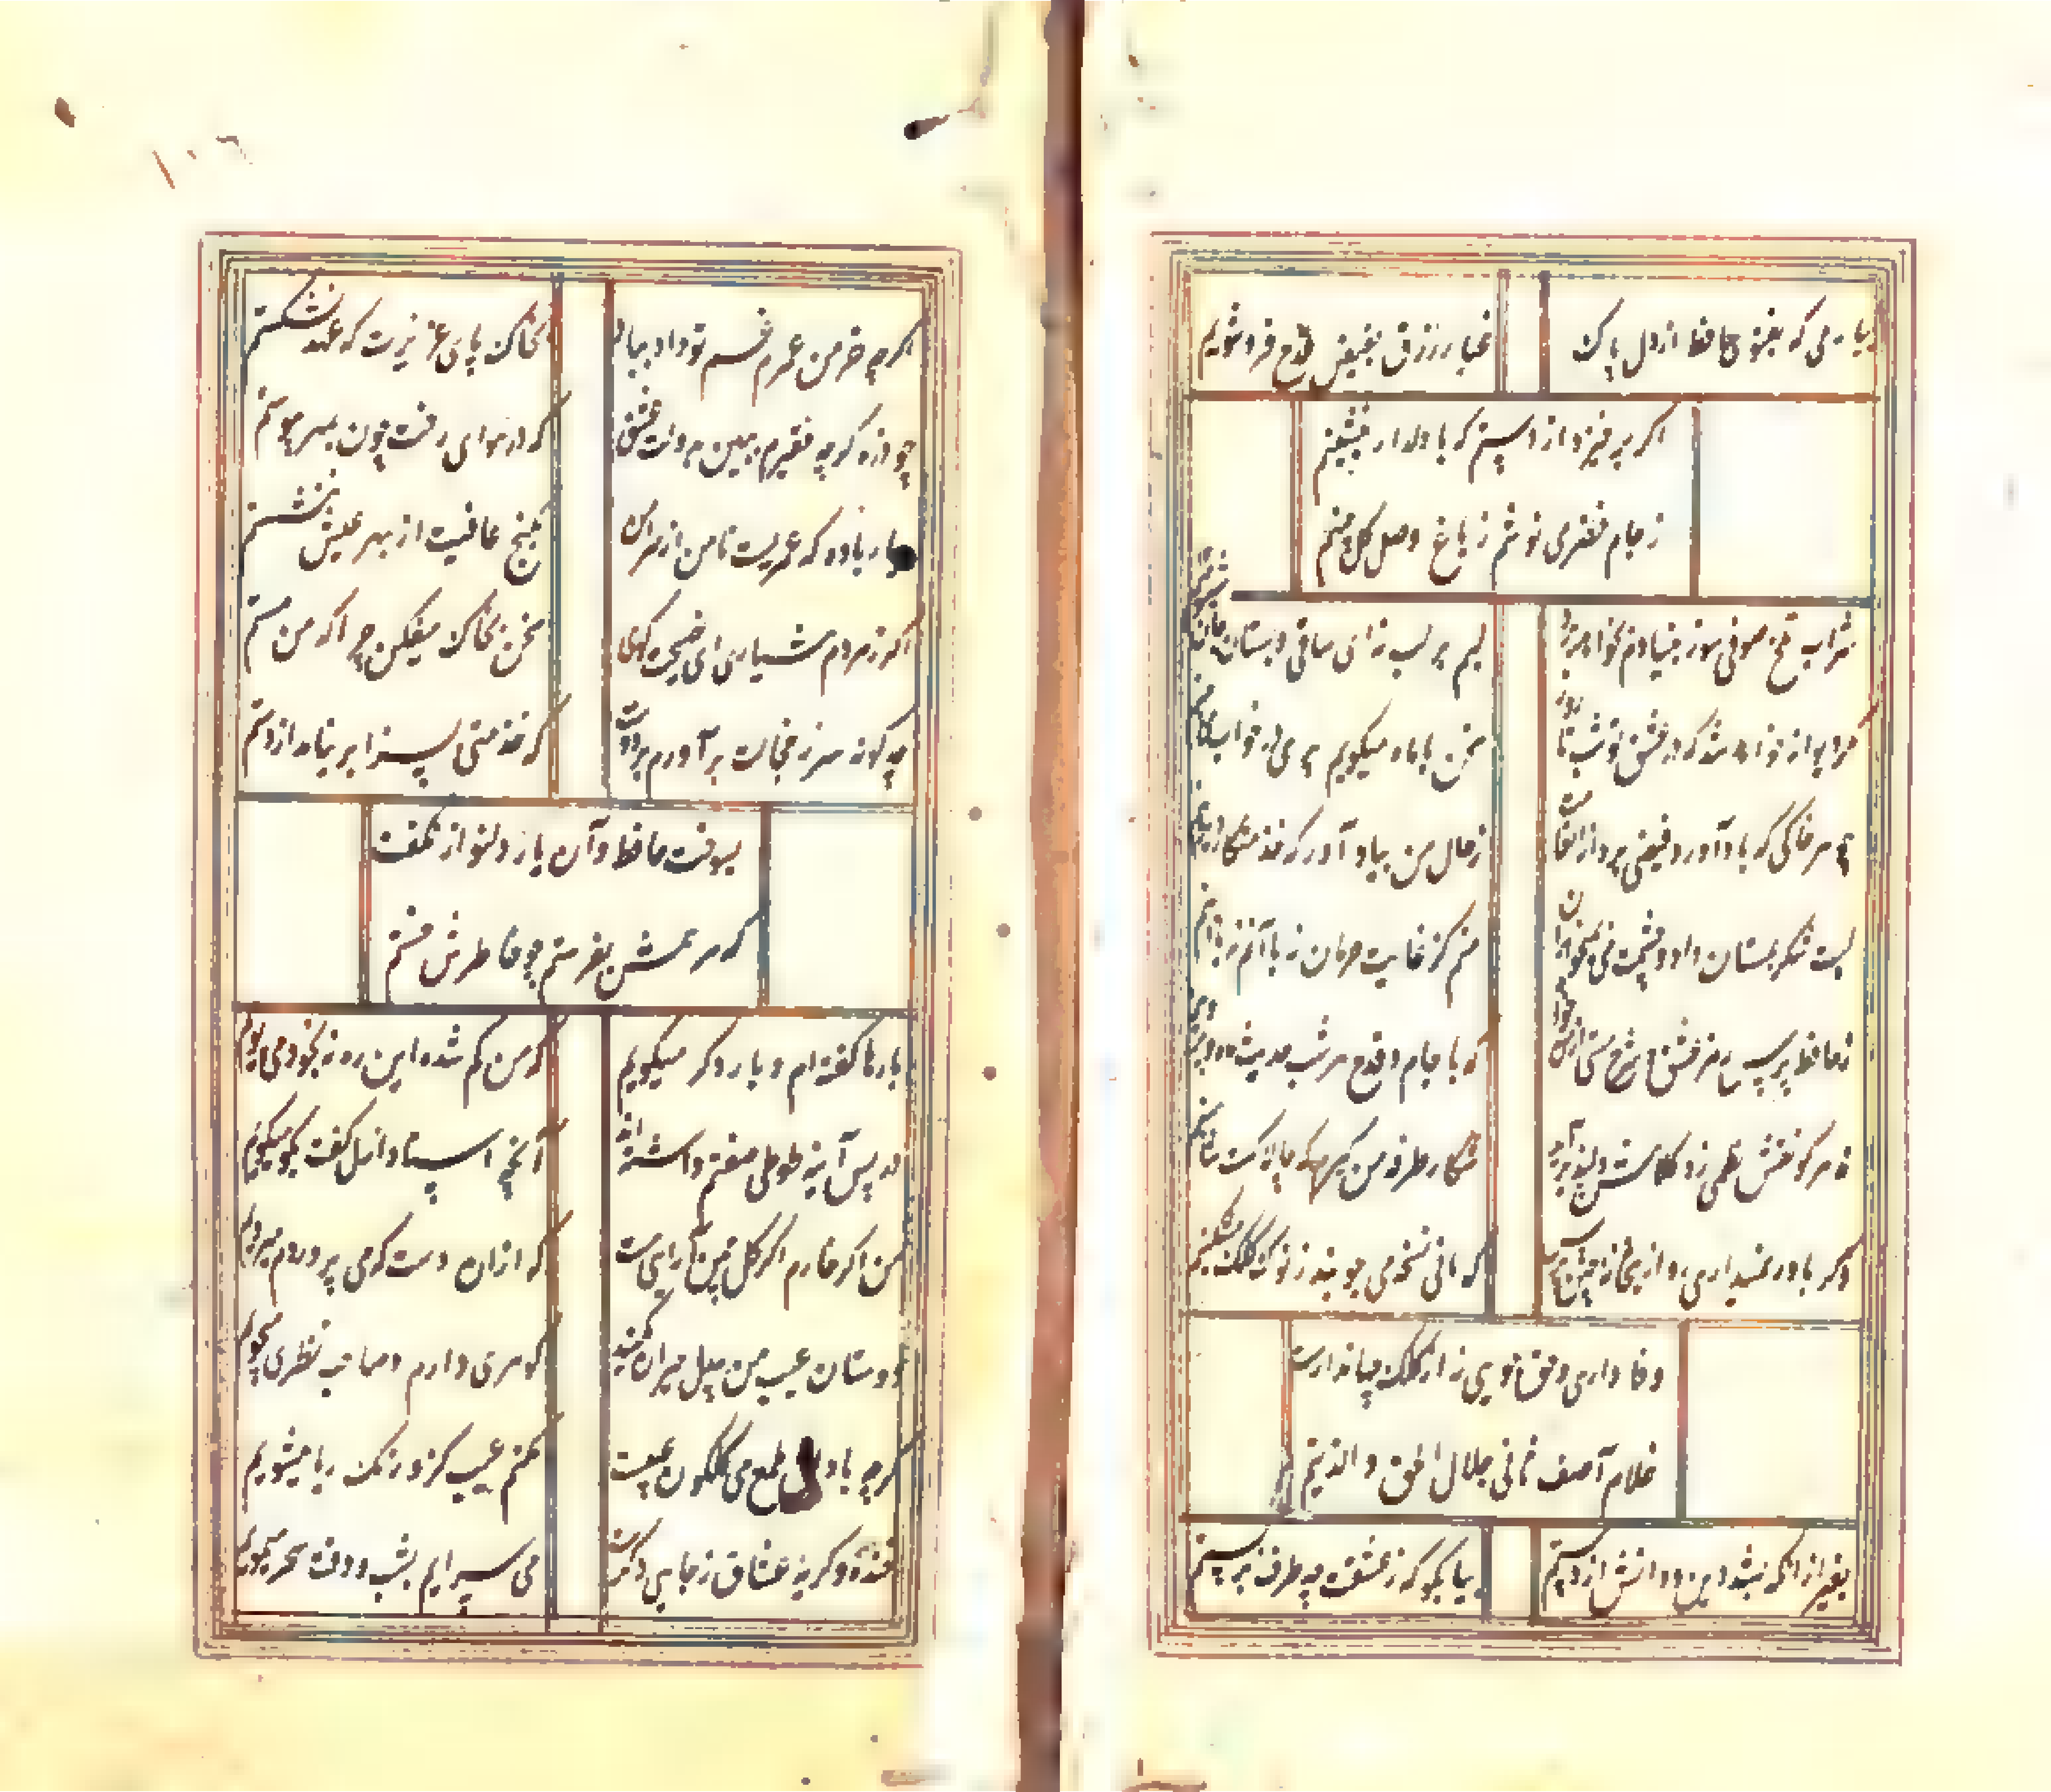 بیار می که بفتوی حافظ از دل پاک
غبار زرق بفیض قدح فرو شویم
اگر برخیزد از دستم که با دلدار بنشینم
ز جام وصل می نوشم ز باغ وصل گل چینم
شراب تلخ صوفی سوز بنیادم بخواهد برد
لبم بر لب نه ای ساقی و بستان جان شیرینم
مگر دیوانه خواهم شد که در عشق تو شب تا روز
سخن با ماه میگویم پری در خواب می بینم
چو هر خاکی که باد آورد فیضی برد از انعامت
ز حال من بیاد آور که خدمتکار دیرینم
لبت شکر بمستان داد و چشمت می بمیخواران
منم کز غایت حرمان نه با آنم نه با اینم
ز حافظ پرس رمز عشق و شرح مستی از من
که با جام و قدح هر شب حدیث ماه و پروینم
نه هر کو نقش نظمی زد کلامش دلپذیر آید
تذرو طرفه من گیرم که چالاک است شاهینم
وگر باور نمیداری رو از صورتگر چین پرس
که مانی نسخه می جوید ز نوک کلک مشکینم
وفاداری و حق گویی نه کار هر کسی باشد
غلام آصف ثانی جلال الحق و الدینم
بغیر از آنکه بشد دین و دانش از دستم
بیا بگو که ز عشقت چه طرف بر بستم
اگر چه خرمن عمرم غم تو داد بباد
بخاک پای عزیزت که عهد نشکستم
چو ذره گرچه فقیرم ببین بدولت عشق
که در هوای رخت چون بمهر پیوستم
بیار باده که عمریست تا من از سر امن
بکنج عافیت از بهر عیش ننشستم
اگر ز مردم هشیاری ای نصیحت گوی
سخن بخاک میفکن چرا که من مستم
چگونه سر ز خجالت برآورم بر دوست
که خدمتی بسزا برنیامد از دستم
بسوخت حافظ و آن یار دلنواز نگفت
که مرهمش بفرستم چو خاطرش خستم
بارها گفته ام و بار دگر میگویم
که من گم شده این ره نه بخود می پویم
در پس آینه طوطی صفتم داشته اند
آنچه استاد ازل گفت بگو میگویم
من اگر خارم اگر گل چمن آرایی هست
که از آن دست که می پروردم میرویم
دوستان عیب من بیدل حیران مکنید
گوهری دارم و صاحب نظری میجویم
گرچه با دلق ملمع می گلگون عیبست
مکنم عیب کزو رنگ ریا میشویم
خنده و گریه عشاق ز جایی دگرست
می سرایم بشب و وقت سحر میمویم